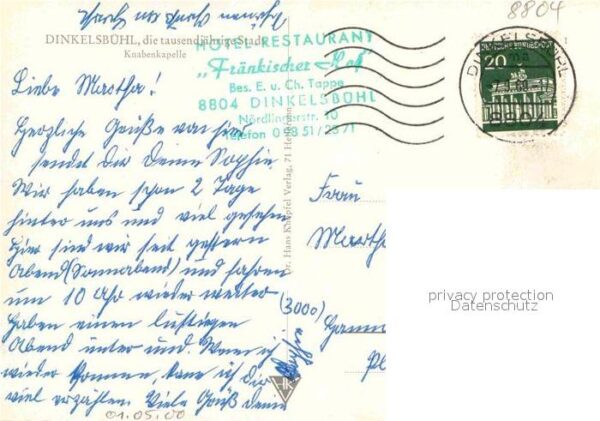 8804
DINKELSBÜHL, die tausendjährige Stadt
Knabenkapelle
HOTEL-RESTAURANT
„Fränkischer Hof“
Bes. E. u. Ch. Tappe
8804 DINKELSBÜHL
Nördlingerstr. 10
Telefon 0 98 51 / 23 71
DINKELSBÜHL
8804
DEUTSCHE BUNDESPOST
20
Dr. Hans Knöpfel Verlag, 71 Heilbronn
Liebe Martha!
Herzliche Grüße von hier
sendet dir Deine Sophie
Wir haben schon 2 Tage
hinter uns und viel gesehen
Hier sind wir seit gestern
Abend (Sonnabend) und fahren
um 10 Uhr wieder weiter
Haben einen lustigen
Abend unter uns. Wenn ich
wieder komme, kann ich Dir
viel erzählen. Viele Grüß deine
Sophie
01.05.00
Frau
Martha
(3000)
HK
privacy protection
Datenschutz